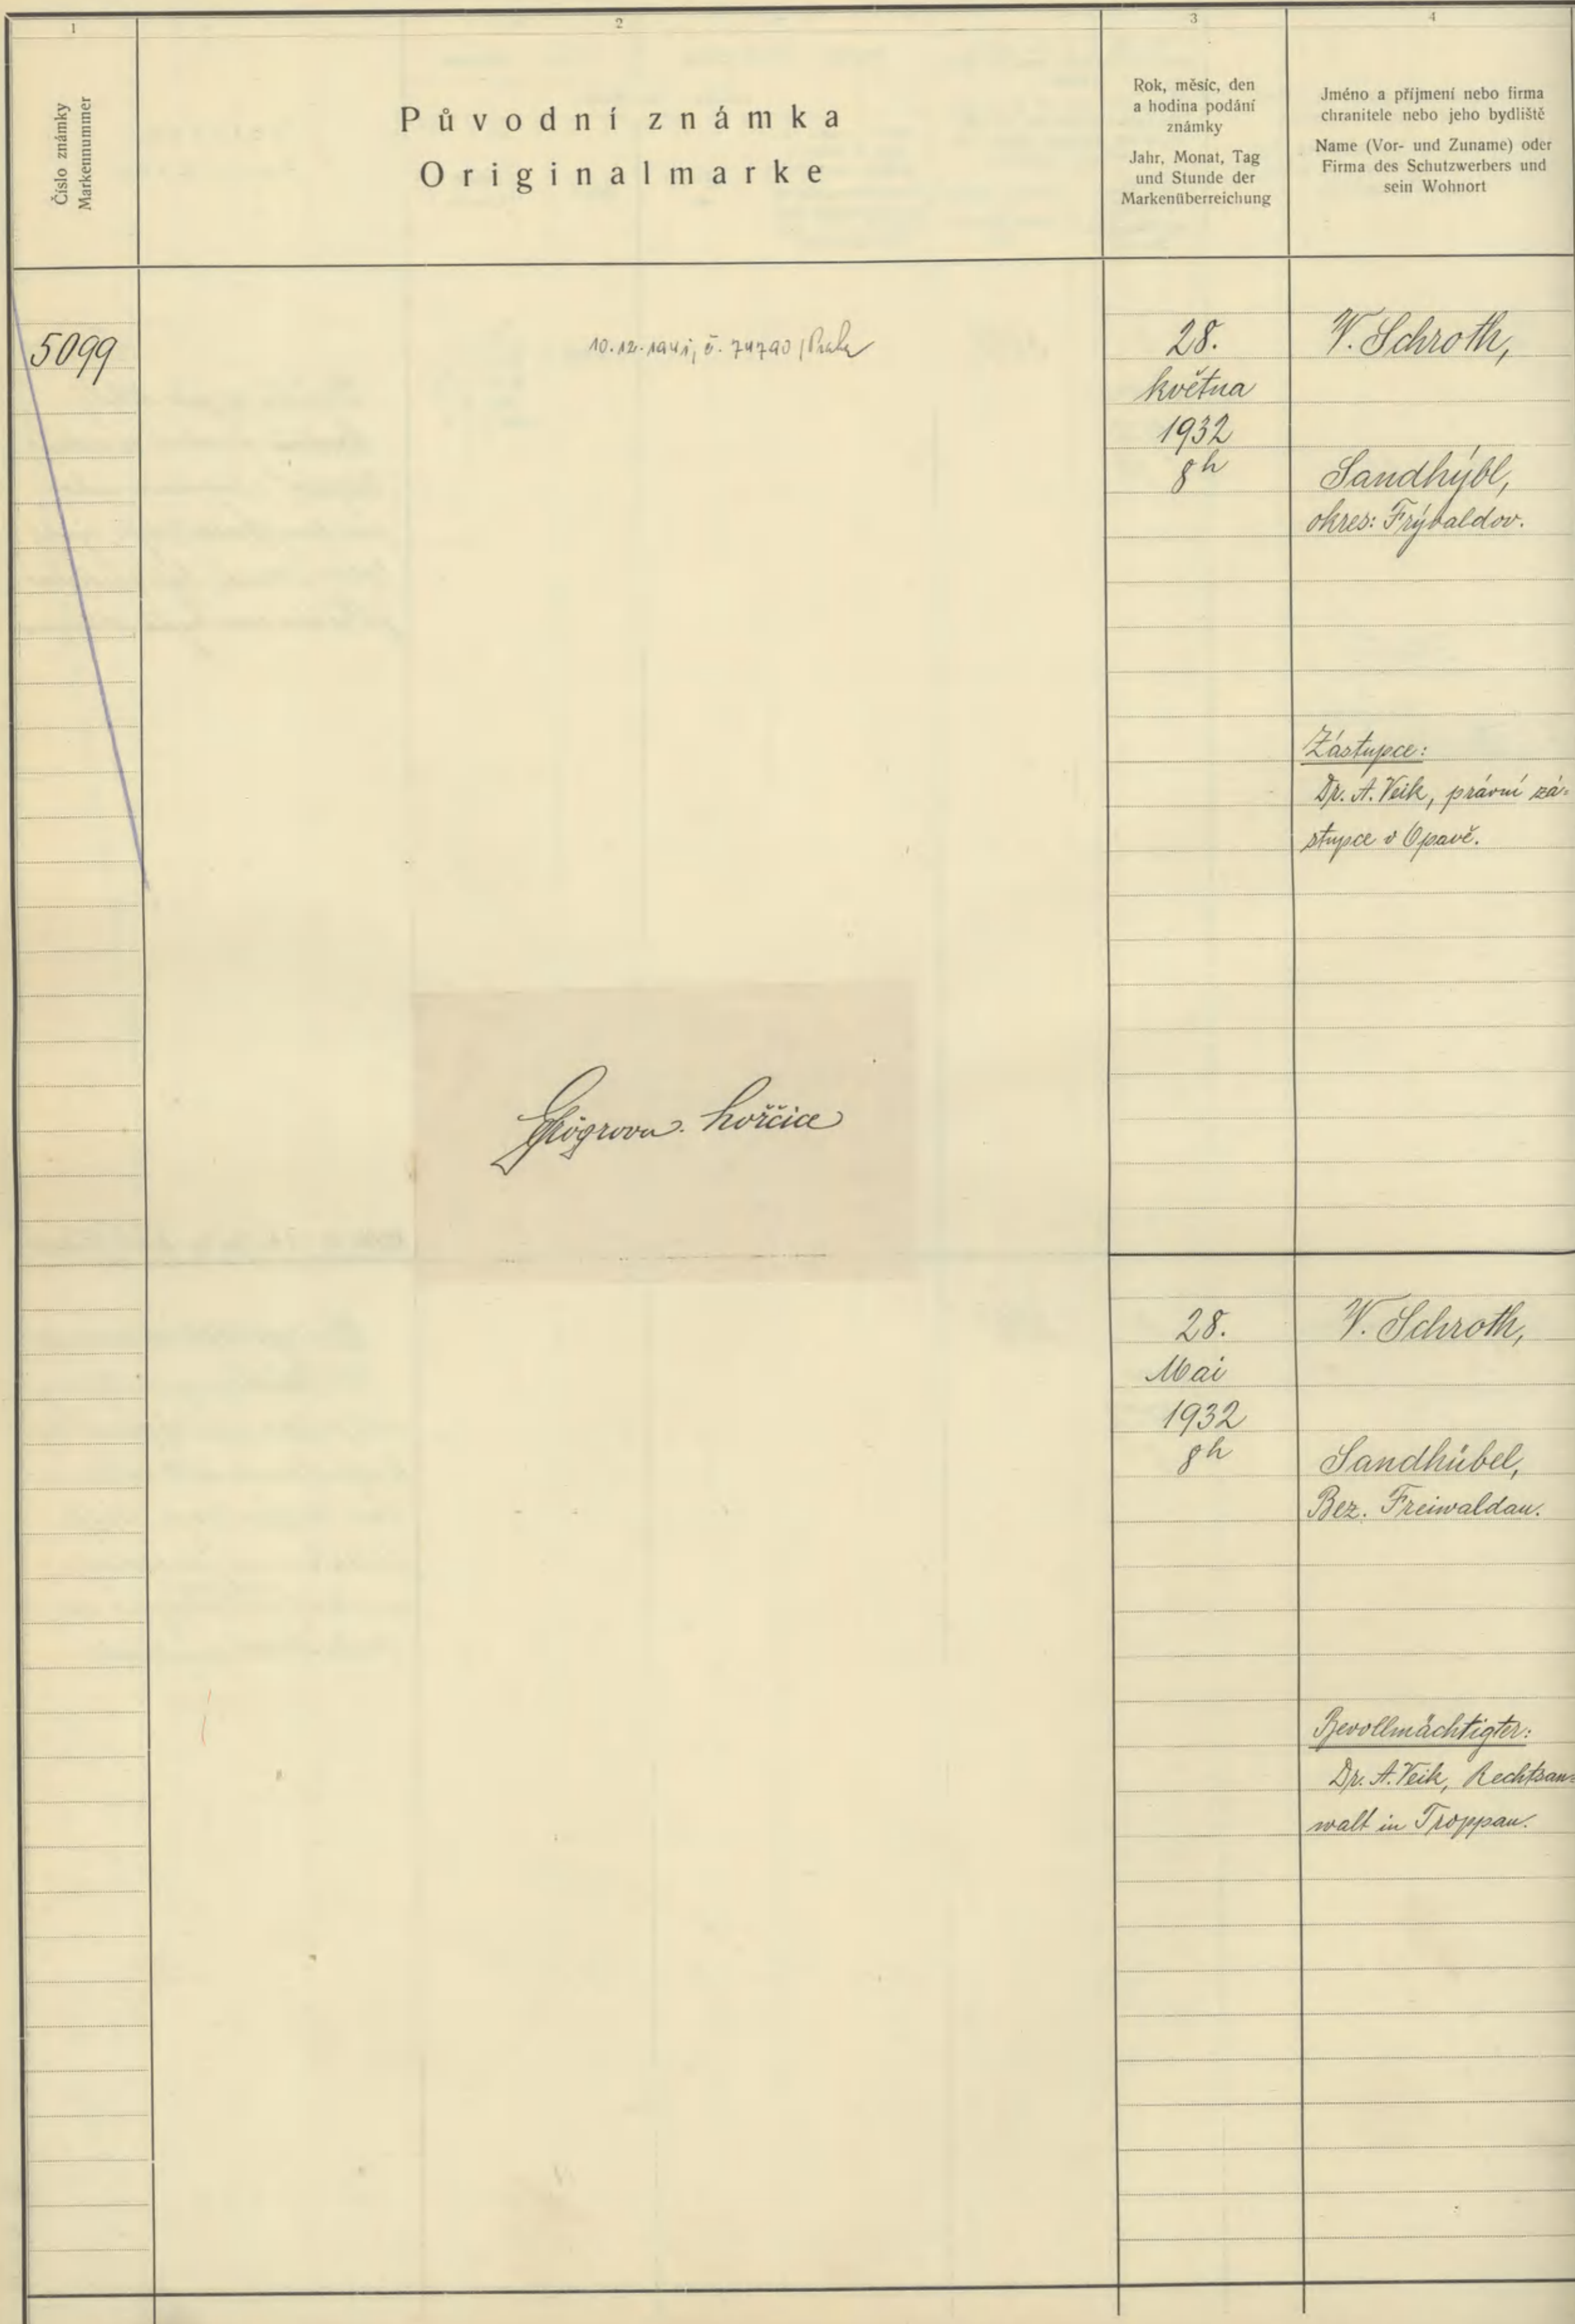 1
2
3
4
Číslo známky
Markennummer
Původní známka
Originalmarke
Rok, měsíc, den
a hodina podání
známky
Jahr, Monat, Tag
und Stunde der
Markenüberreichung
Jméno a příjmení nebo firma
chranitele nebo jeho bydliště
Name (Vor- und Zuname) oder
Firma des Schutzwerbers und
sein Wohnort
5099
10.12.1941, č. 74790 | Praha
28.
května
1932
8h
V. Schroth,
Sandhýbl,
okres: Frývaldov.
Zástupce:
Dr. A. Veik, právní zá-
stupce v Opavě.
hořčice
28.
Mai
1932
8h
V. Schroth,
Sandhübel,
Bez. Freiwaldau.
Bevollmächtigter:
Dr. A. Veik, Rechtsan-
walt in Troppau.